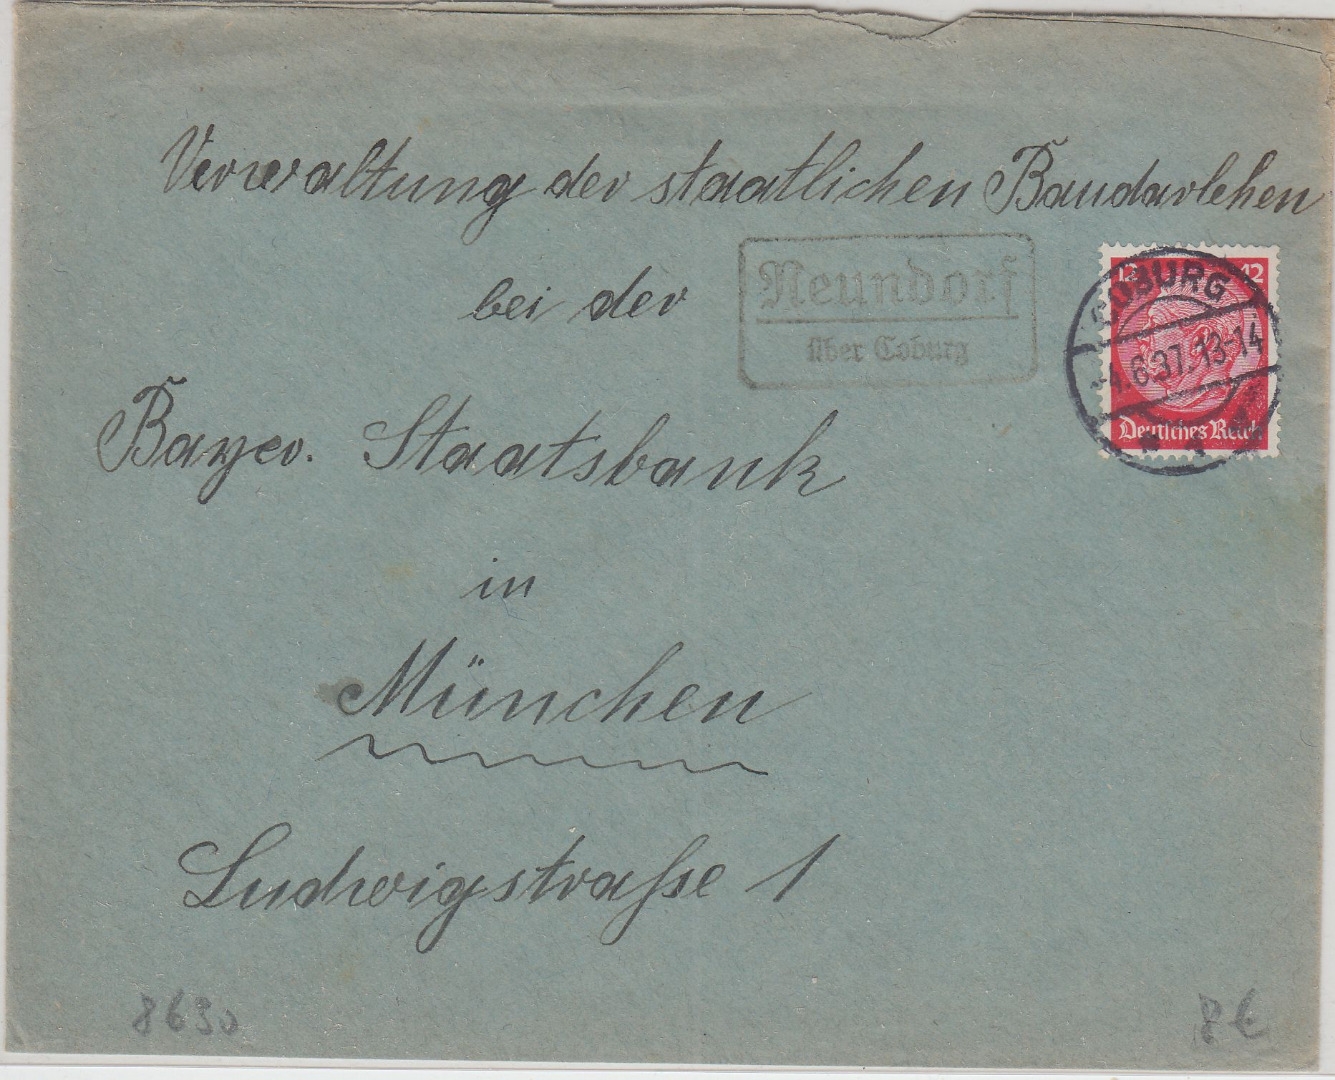 Verwaltung der staatlichen Baudarlehen
bei der
Neundorf
über Coburg
12 12
COBURG
-4.6.37.13-14
Deutsches Reich
Bayer. Staatsbank
in
München
Ludwigstraße 1
8630
8€